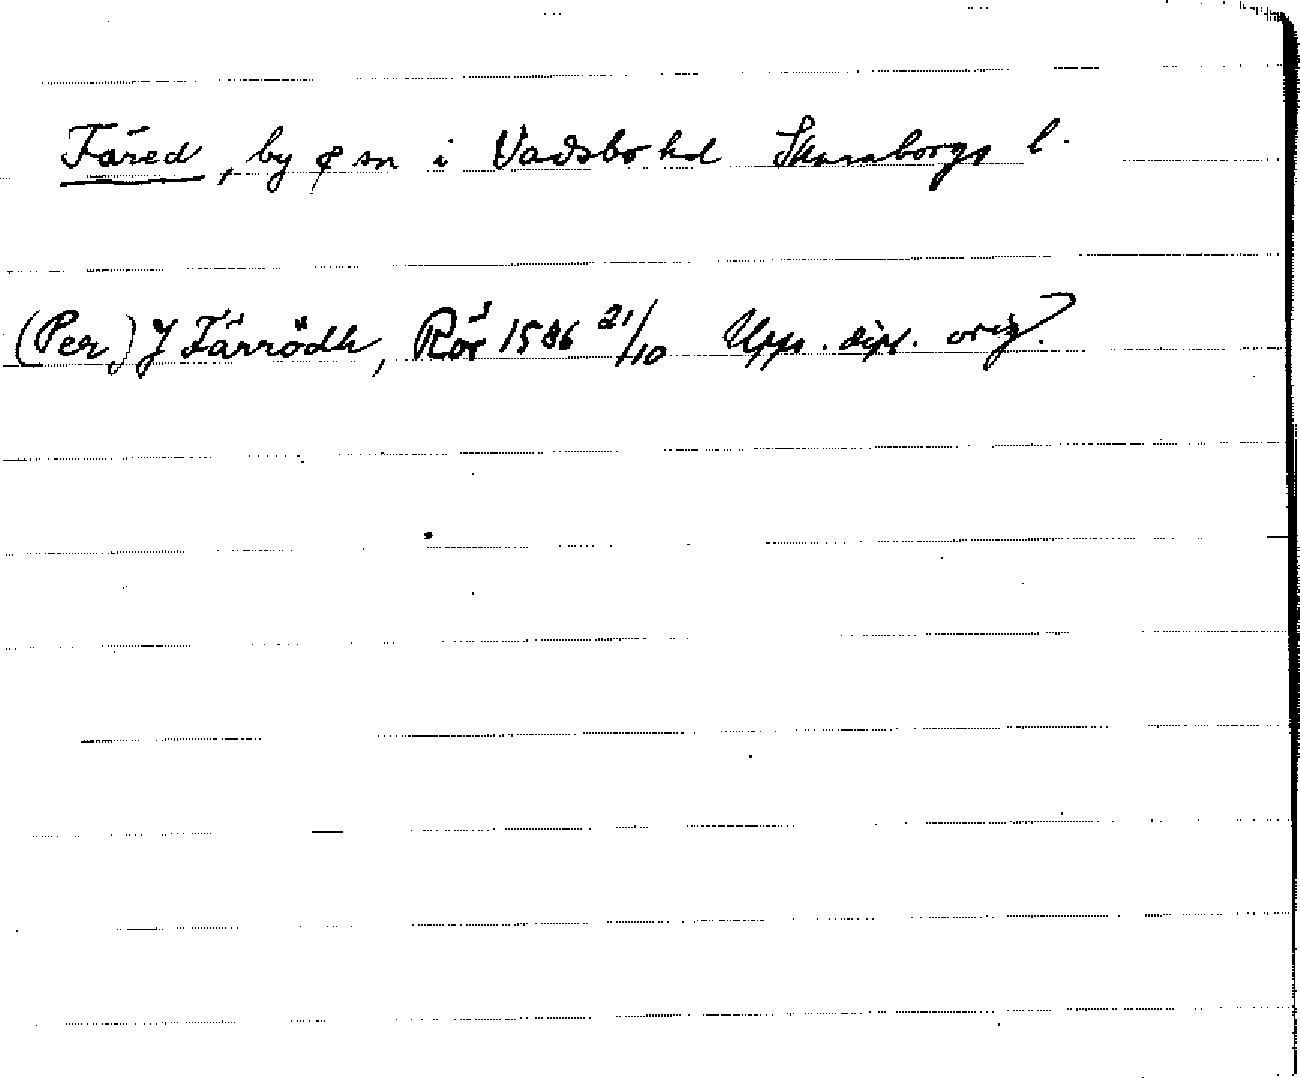 Färed, by & sn i Vadsbo hd Skaraborgs l.
(Per) J Färrödh, Rör 1586 21/10 Upps. dipl. orig.